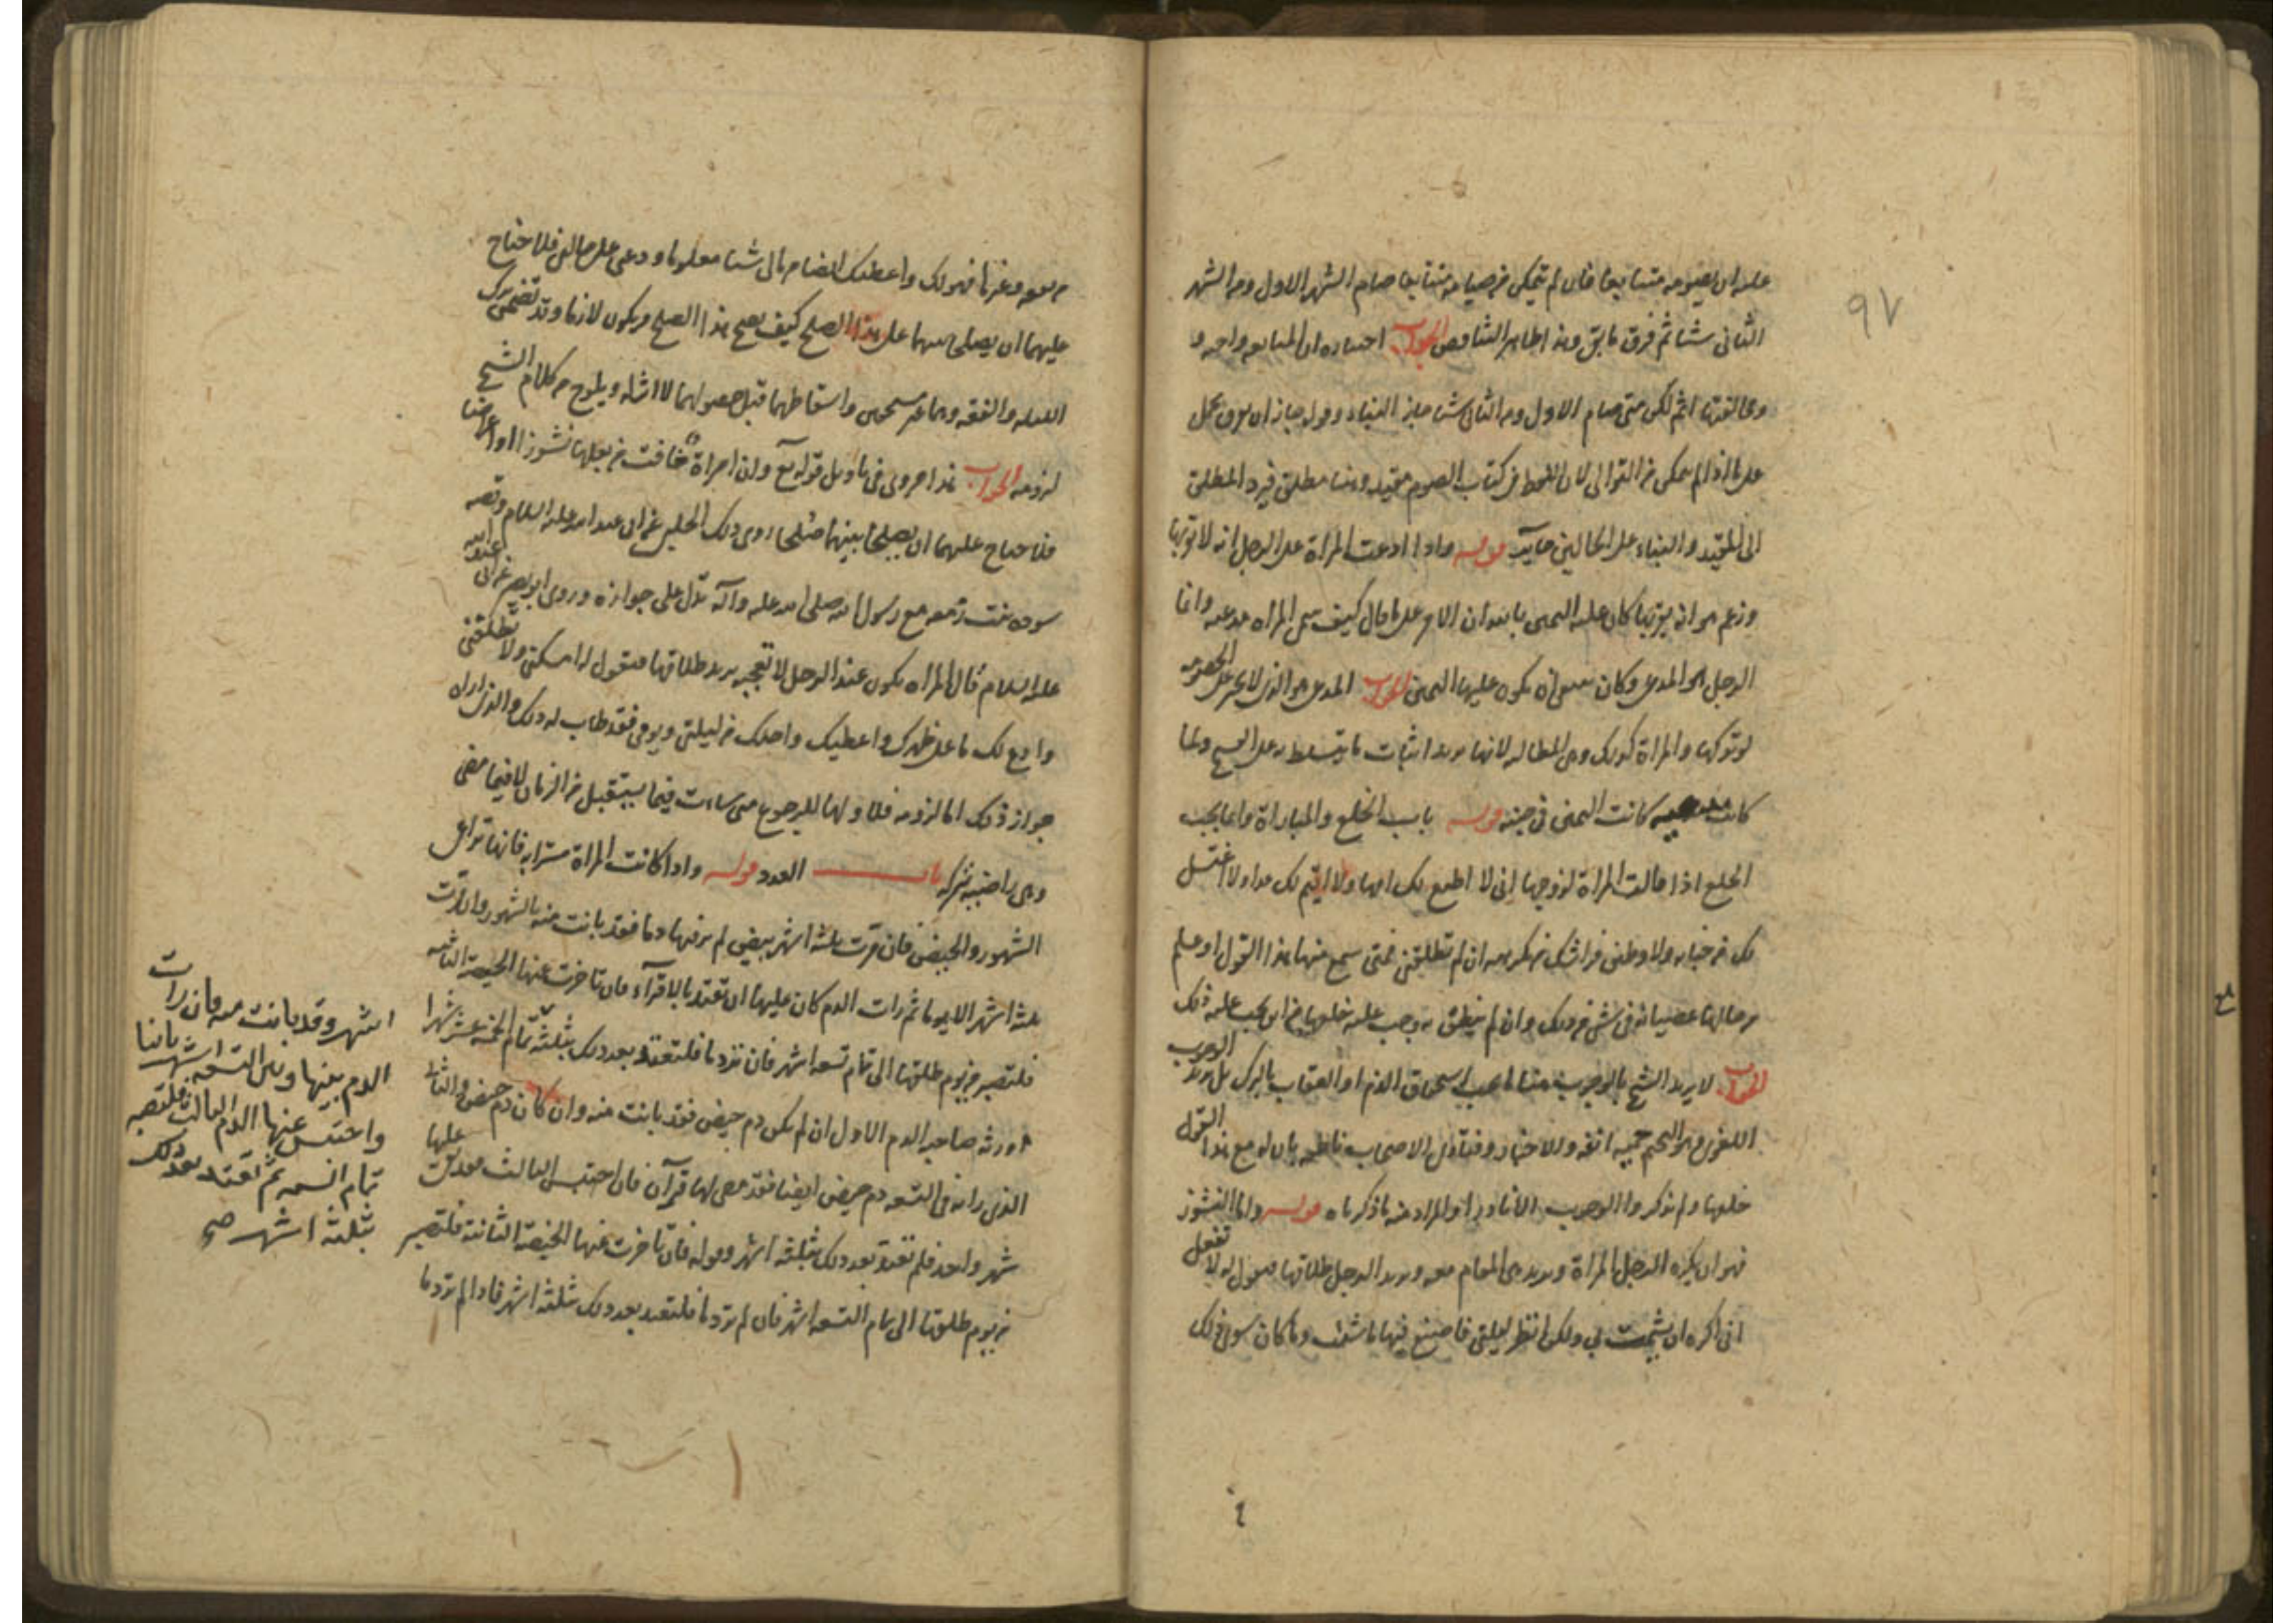 ٩٧
عليه ان يصومه متتابعا فان لم يتمكن من صيامه متتابعا صام الشهر الاول ومن الشهر
الثانى شيئا ثم فرق ما بقى وهذا ظاهر التناقض الجواب اختياره ان المتابعه واجبه و
ومخالفتها اثم لكن متى صام الاول ومن الثانى شيئا جاز البناء وقوله جاز ان يفرق محمل
على ما اذا لم يتمكن من التوالى لان اللفظ فى كتاب الصوم مقيد وهنا مطلق فيرد المطلق
الى المقيد والبناء على الحالين جايز قوله واذا ادعت المراة على الرجل انه لا يقربها
وزعم هو انه يقربها كان عليه اليمين بالله ان الامر على ما قال كيف سمى المراه مدعيه وانما
الرجل هو المدعى وكان ينبغى ان يكون عليها اليمين الجواب المدعى هو الذى لا يجبر على الخصومه
لو تركها والمراة كذلك وهى المطالبه لانها تريد اثبات ما يتسلط به على الفسخ ولما
كانت كانت اليمين فى جنبه قوله باب الخلع والمباراة وانما يجب
الخلع اذا قالت المراة لزوجها انى لا اطيع لك امرا ولا اقيم لك حدا ولا اغتسل
لك من جنابه ولاوطئن فراشك من تكرهه ان لم تطلقنى فمتى سمع منها هذا القول او علم
من حالها عصيانه فى شئ من ذلك وان لم ينطق به وجب عليه خلعها من اين يجب عليه ذلك
الجواب لا يريد الشيخ بالوجوب هنا استحقاق الذم او العقاب بالترك بل يريد الوجوب
اللغوى وهو التحتم حميه انفه والاخبار وفتاوى الاصحاب ناطقه بان له مع هذا القول
خلعها ولم يذكروا الوجوب الا نادرا والمراد منه ما ذكرناه قوله واما النشوز
فهو ان يكره الرجل المراة وتريد هى المقام معه ويريد الرجل طلاقها فتقول له لا تفعل
انى اكره ان يشمت بى ولكن انظر ليلتى فاصنع فيها ما شئت وما كان سوى ذلك
من نفقه وغيرها فهو لك واعطيك ايضا من مالى شيئا معلوما ودعنى على حالتى فلا جناح
عليهما ان يصلحا بينهما على هذا الصلح كيف يصح هذا الصلح ويكون لازما وقد تضمن ترك
الليله والنفقه وهما غير مستحقين واسقاطهما قبل حصولهما لا اثر له ويلوح من كلام الشيخ
لزومه الجواب هذا مروى فى تاويل قوله تع وان امراة خافت من بعلها نشوزا او اعراضا
فلا جناح عليهما ان يصلحا بينهما صلحا روى ذلك الحلبى عن ابى عبد الله عليه السلام وقصه
سوده بنت زمعه مع رسول الله صلى الله عليه وآله تدل على جوازه وروى ابو بصير عن ابى عبد الله
عليه السلام قال المراه يكون عند الرجل لا تعجبه يريد طلاقها فتقول له امسكنى ولا تطلقنى
وادع لك ما على ظهرك واعطيك واحلك من ليلتى ويومى فقد طاب له ذلك والذى اراه
جواز ذلك اما لزومه فلا ولها الرجوع متى شاءت فيما يستقبل من الزمان لا فيما مضى
وهى راضيه بتركه باب العدد قوله واذا كانت المراة مسترابه فانها تراعى
الشهور والحيض فان مرت ثلثه اشهر بيض لم تر فيها دما فقد بانت منه بالشهور وان رات
ثلثه اشهر الا يوما ثم رات الدم كان عليها ان تعتد بالاقرآء فان تاخرت عنها الحيضه الثانيه
فلتصبر من يوم طلقها الى تمام تسعه اشهر فان لم تر دما فلتعتد بعد ذلك بثلثه تمام الخمسه عشر شهرا
ورثه صاحبه الدم الاول ان لم يكن دم حيض فقد بانت منه وان كان دم حيض والثانى
الذى راته فى التسعه دم حيض ايضا فقد مضى لها قرآن فان احتبس الثالث فقد بقى عليها
شهر واحد فلم تعتد بعد ذلك بثلثه اشهر وقوله فان تاخرت عنها الحيضه الثانيه فلتصبر
من يوم طلقها الى تمام التسعه اشهر فان لم تر دما فلتعتد بعد ذلك بثلثه اشهر فاذا لم تر دما
اشهر وقد بانت منه وان رات
الدم بينها وبين التسعه اشهر ثانيا
واحتبس عنها الدم الثالث فلتصبر
تمام السنه ثم تعتد بعد ذلك
بثلثه اشهر صح